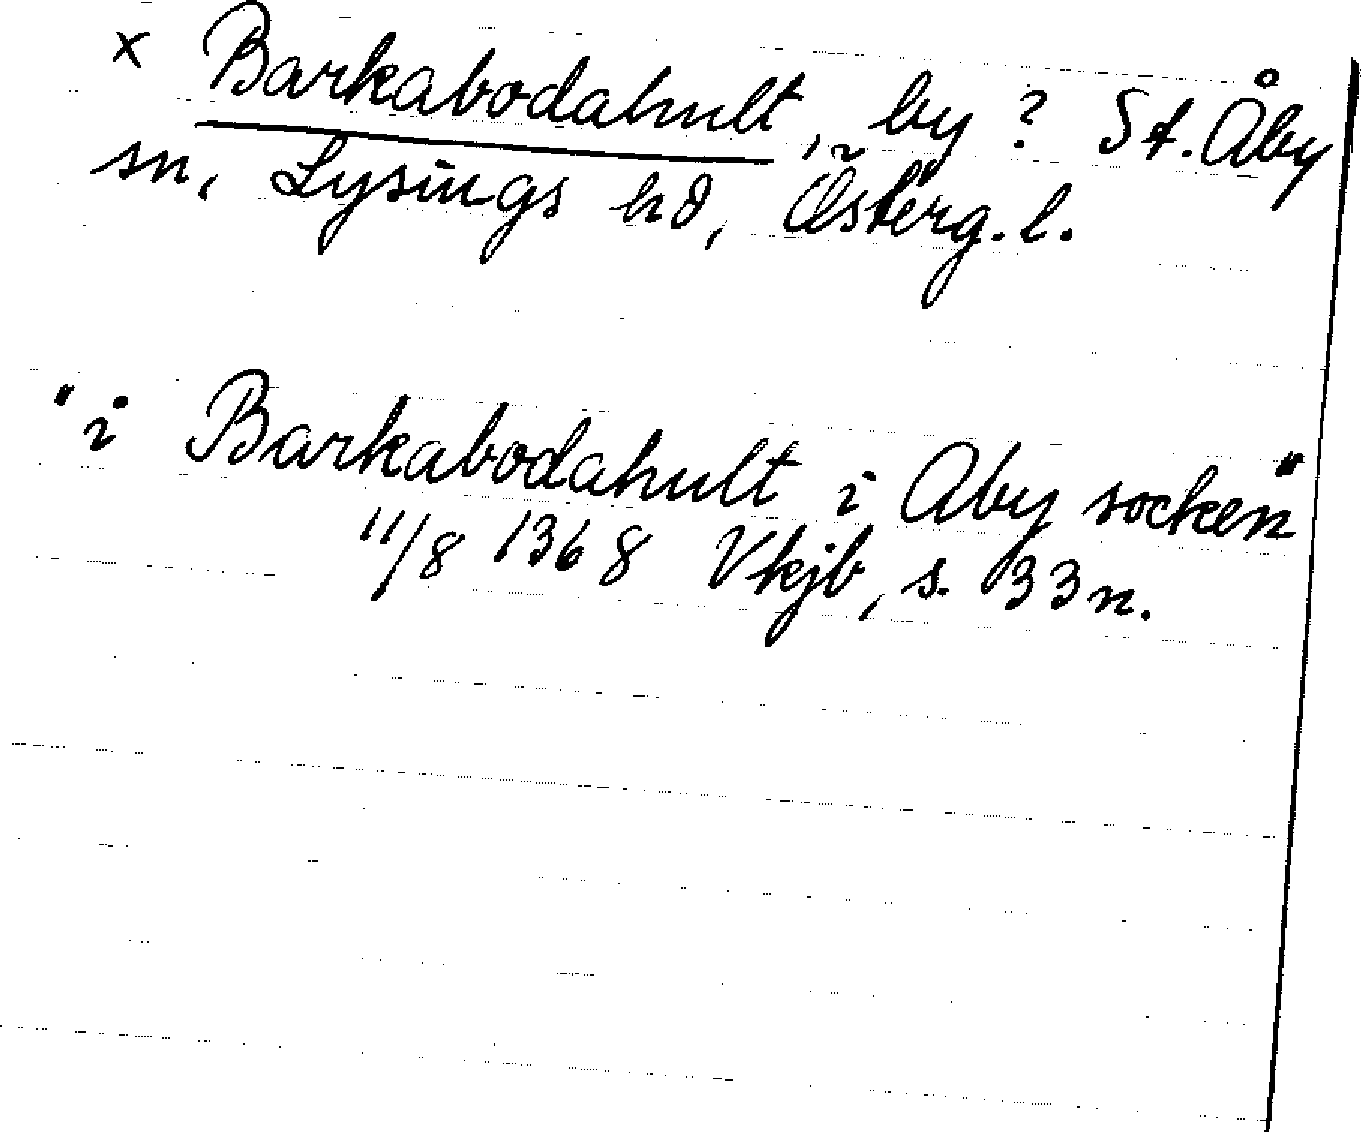 x Barkabodahult, by? St. Åby
sn, Lysings hd, Österg. l.
"i Barkabodahult i Aby socken"
11/8 1368 Vkjb, s. 33 n.